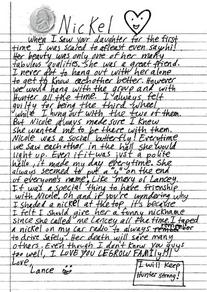 Nickel
When I saw your daughter for the first
time I was scared to even say hi!
Her beauty was only one of her many
fabulous qualities. She was a great friend.
I never got to hang out with her alone
to get to know eachother better. However
we would hang with the group and with
Hunter all the time. I always felt
guilty for being the third wheel
while I hung out with the two of them.
But Nicole always made sure I knew
she wanted me to be there with them.
Nicole was a social butterfly! Everytime
we saw eachother in the hall she would
light up. Even if it was just a polite
hello, it made my day everytime. She
always seemed to put a "y" on the end
of everyone's name. Like "Mary or Lancey.
It was a special thing to have friendship
with Nicole. Oh and if you're wondering why
I shaded a nickel at the top, it's because
I felt I should give her a funny nickname
since she called me Lancey all the time. I taped
a nickel on my car radio to always remember
to drive safely. Her death will save many
others. Even though I don't know you guys
too well, I LOVE YOU LEGROW FAMILY!!
Love,
Lance
I will keep
Hunter strong!